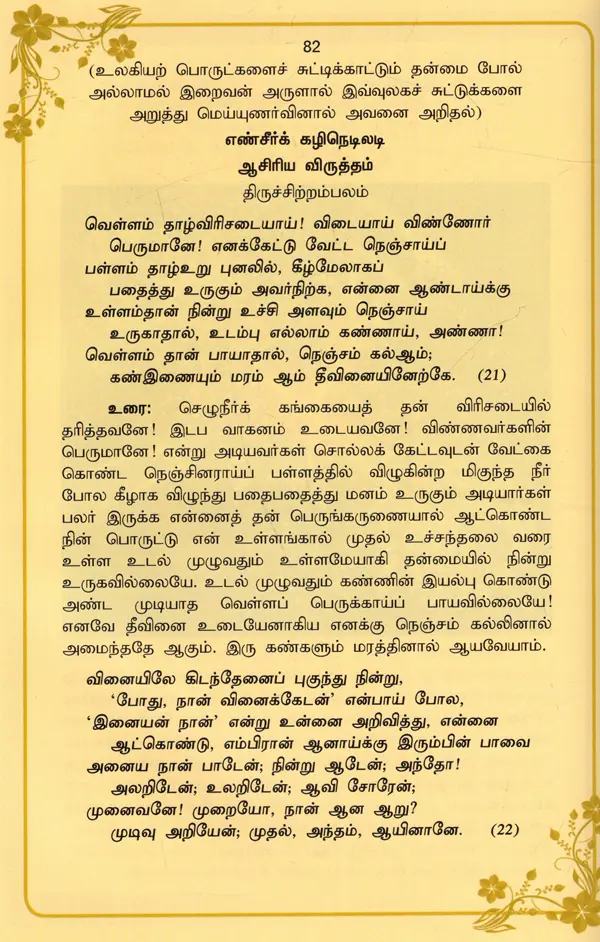 82
(உலகியற் பொருட்களைச் சுட்டிக்காட்டும் தன்மை போல்
அல்லாமல் இறைவன் அருளால் இவ்வுலகச் சுட்டுக்களை
அறுத்து மெய்யுணர்வினால் அவனை அறிதல்)
எண்சீர்க் கழிநெடிலடி
ஆசிரிய விருத்தம்
திருச்சிற்றம்பலம்
வெள்ளம் தாழ்விரிசடையாய்! விடையாய் விண்ணோர்
பெருமானே! எனக்கேட்டு வேட்ட நெஞ்சாய்ப்
பள்ளம் தாழ்உறு புனலில், கீழ்மேலாகப்
பதைத்து உருகும் அவர்நிற்க, என்னை ஆண்டாய்க்கு
உள்ளம்தான் நின்று உச்சி அளவும் நெஞ்சாய்
உருகாதால், உடம்பு எல்லாம் கண்ணாய், அண்ணா!
வெள்ளம் தான் பாயாதால், நெஞ்சம் கல்ஆம்;
கண்இணையும் மரம் ஆம் தீவினையினேற்கே. (21)
உரை: செழுநீர்க் கங்கையைத் தன் விரிசடையில்
தரித்தவனே! இடப வாகனம் உடையவனே! விண்ணவர்களின்
பெருமானே! என்று அடியவர்கள் சொல்லக் கேட்டவுடன் வேட்கை
கொண்ட நெஞ்சினராய்ப் பள்ளத்தில் விழுகின்ற மிகுந்த நீர்
போல கீழாக விழுந்து பதைபதைத்து மனம் உருகும் அடியார்கள்
பலர் இருக்க என்னைத் தன் பெருங்கருணையால் ஆட்கொண்ட
நின் பொருட்டு என் உள்ளங்கால் முதல் உச்சந்தலை வரை
உள்ள உடல் முழுவதும் உள்ளமேயாகி தன்மையில் நின்று
உருகவில்லையே. உடல் முழுவதும் கண்ணின் இயல்பு கொண்டு
அண்ட முடியாத வெள்ளப் பெருக்காய்ப் பாயவில்லையே!
எனவே தீவினை உடையேனாகிய எனக்கு நெஞ்சம் கல்லினால்
அமைந்ததே ஆகும். இரு கண்களும் மரத்தினால் ஆயவேயாம்.
வினையிலே கிடந்தேனைப் புகுந்து நின்று,
'போது, நான் வினைக்கேடன்' என்பாய் போல,
'இனையன் நான்' என்று உன்னை அறிவித்து, என்னை
ஆட்கொண்டு, எம்பிரான் ஆனாய்க்கு இரும்பின் பாவை
அனைய நான் பாடேன்; நின்று ஆடேன்; அந்தோ!
அலறிடேன்; உலறிடேன்; ஆவி சோரேன்;
முனைவனே! முறையோ, நான் ஆன ஆறு?
முடிவு அறியேன்; முதல், அந்தம், ஆயினானே. (22)